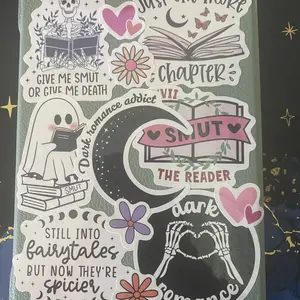 JUST ONE MORE
CHAPTER
GIVE ME SMUT
OR GIVE ME DEATH
Dark romance addict
VII
SMUT
THE READER
SMUT
STILL INTO
fairytales
BUT NOW THEY'RE
spicier
dark
romance